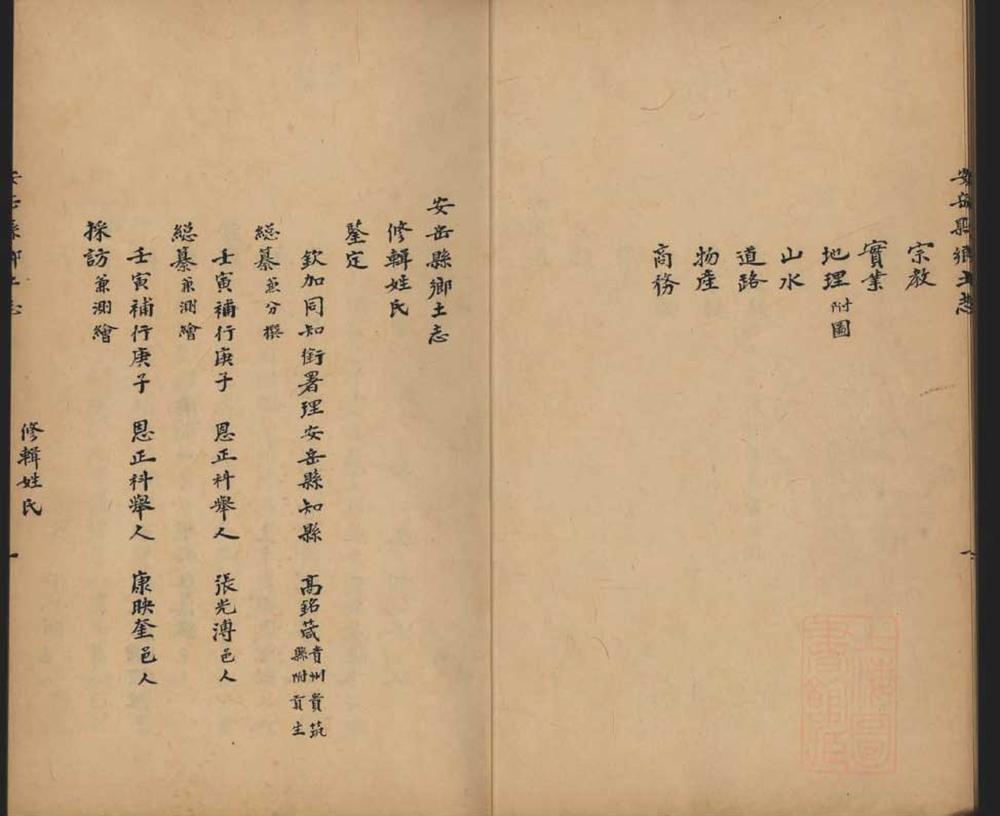 安岳縣鄉土志
宗教
實業
地理附圖
山水
道路
物產
商務
一
上海圖書館藏
安岳縣鄉土志
修輯姓氏
鑒定
欽加同知銜署理安岳縣知縣　高銘箴貴州貴筑縣附貢生
總纂兼分撰
壬寅補行庚子　恩正科舉人　張光溥邑人
總纂兼測繪
壬寅補行庚子　恩正科舉人　康映奎邑人
採訪兼測繪
安岳縣鄉土志
修輯姓氏
一